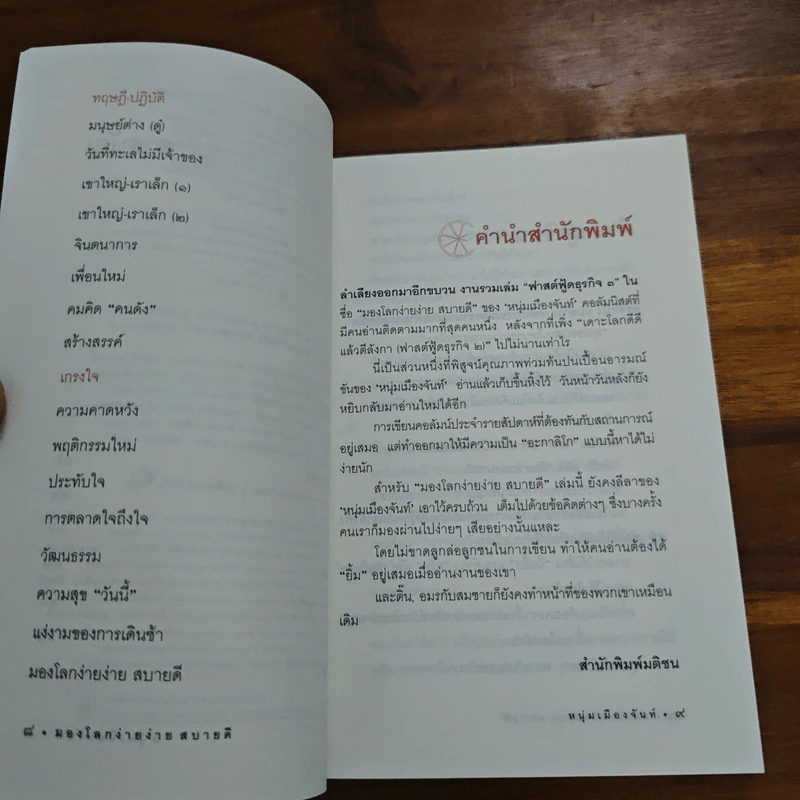 ทฤษฎี-ปฏิบัติ
มนุษย์ต่าง (ดู๋)
วันที่ทะเลไม่มีเจ้าของ
เขาใหญ่-เราเล็ก (๑)
เขาใหญ่-เราเล็ก (๒)
จินตนาการ
เพื่อนใหม่
คมคิด “คนดัง”
สร้างสรรค์
เกรงใจ
ความคาดหวัง
พฤติกรรมใหม่
ประทับใจ
การตลาดใจถึงใจ
วัฒนธรรม
ความสุข “วันนี้”
แง่งามของการเดินช้า
มองโลกง่ายง่าย สบายดี
๘ • มองโลกง่ายง่าย สบายดี
คำนำสำนักพิมพ์
ลำเลียงออกมาอีกขบวน งานรวมเล่ม “ฟาสต์ฟู้ดธุรกิจ ๓” ใน
ชื่อ “มองโลกง่ายง่าย สบายดี” ของ ‘หนุ่มเมืองจันท์’ คอลัมนิสต์ที่
มีคนอ่านติดตามมากที่สุดคนหนึ่ง หลังจากที่เพิ่ง “เตาะโลกดีดี
แล้วตีลังกา (ฟาสต์ฟู้ดธุรกิจ ๒)” ไปไม่นานเท่าไร
นี่เป็นส่วนหนึ่งที่พิสูจน์คุณภาพท่วมท้นปนเปื้อนอารมณ์
ขันของ ‘หนุ่มเมืองจันท์’ อ่านแล้วเก็บขึ้นหิ้งไว้ วันหน้าวันหลังก็ยัง
หยิบกลับมาอ่านใหม่ได้อีก
การเขียนคอลัมน์ประจำรายสัปดาห์ที่ต้องทันกับสถานการณ์
อยู่เสมอ แต่ทำออกมาให้มีความเป็น “อะกาลิโก” แบบนี้หาได้ไม่
ง่ายนัก
สำหรับ “มองโลกง่ายง่าย สบายดี” เล่มนี้ ยังคงลีลาของ
‘หนุ่มเมืองจันท์’ เอาไว้ครบถ้วน เต็มไปด้วยข้อคิดต่างๆ ซึ่งบางครั้ง
คนเราก็มองผ่านไปง่ายๆ เสียอย่างนั้นแหละ
โดยไม่ขาดลูกล่อลูกชนในการเขียน ทำให้คนอ่านต้องได้
“ยิ้ม” อยู่เสมอเมื่ออ่านงานของเขา
และติ๋น, อมรกับสมชายก็ยังคงทำหน้าที่ของพวกเขาเหมือน
เดิม
สำนักพิมพ์มติชน
หนุ่มเมืองจันท์ • ๙